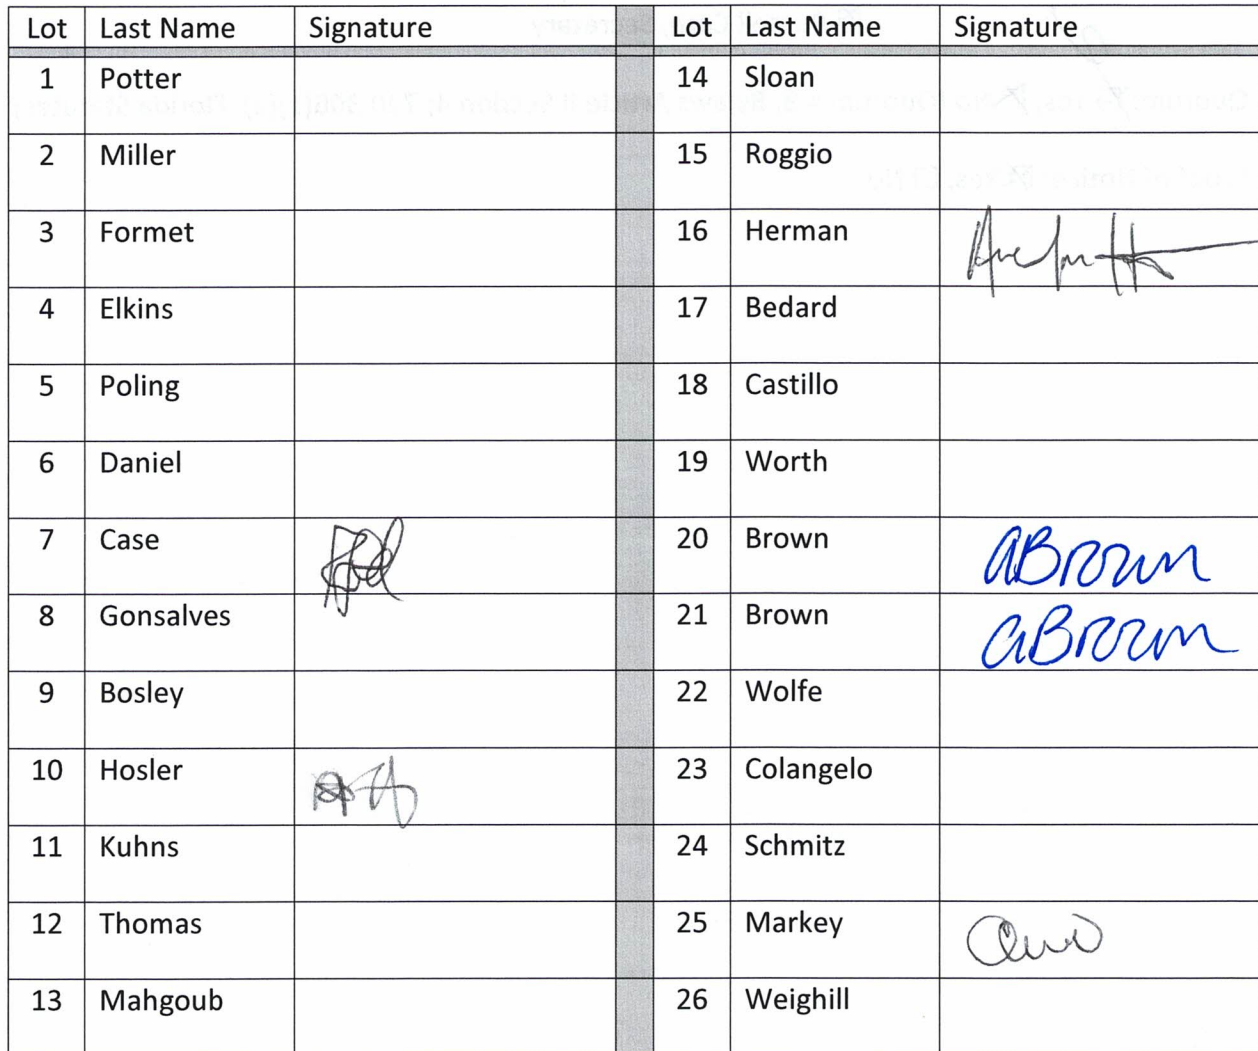 Lot Last Name Signature Lot Last Name Signature
1 Potter 14 Sloan
2 Miller 15 Roggio
3 Formet 16 Herman
4 Elkins 17 Bedard
5 Poling 18 Castillo
6 Daniel 19 Worth
7 Case 20 Brown aBrown
8 Gonsalves 21 Brown aBrown
9 Bosley 22 Wolfe
10 Hosler 23 Colangelo
11 Kuhns 24 Schmitz
12 Thomas 25 Markey
13 Mahgoub 26 Weighill